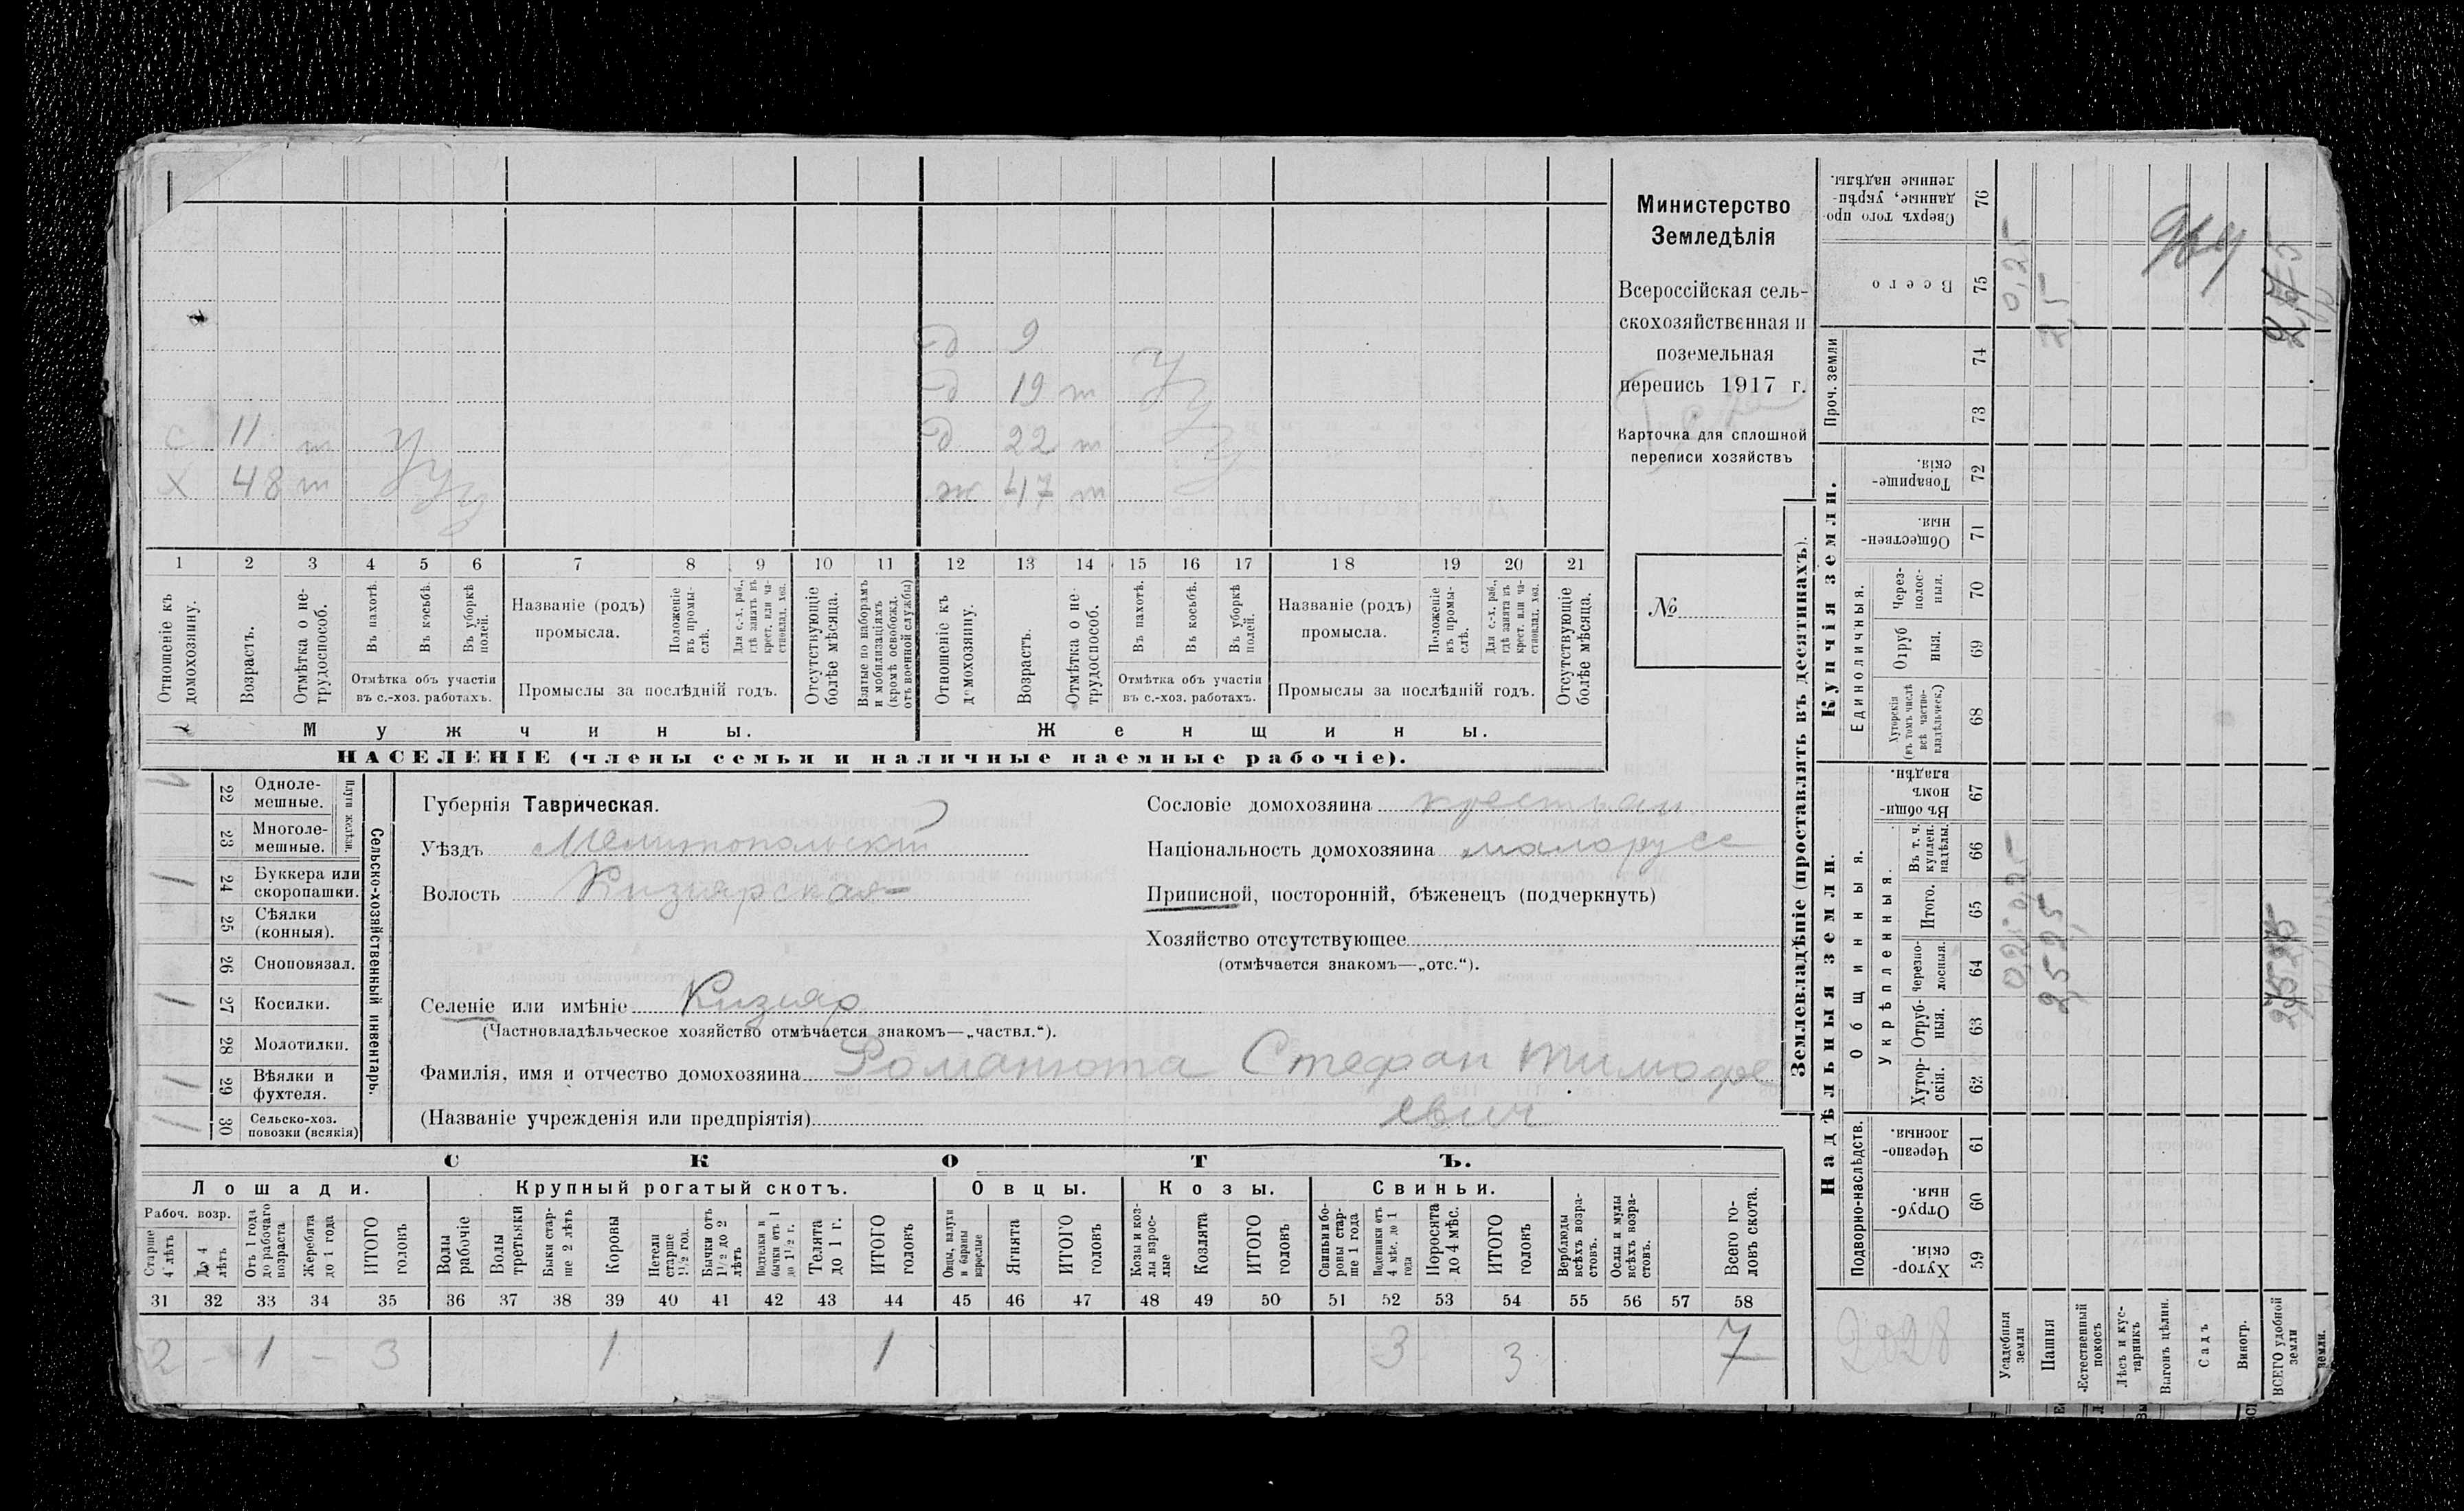 Министерство
Земледѣлія
Всероссійская сель-
скохозяйственная и
поземельная
перепись 1917 г.
Карточка для сплошной
переписи хозяйствъ
№
д 9
д 19 т У
с 11 т У д 22 т У
х 48 т У У ж 47 т
1 2 3 4 5 6 7 8 9 10 11 12 13 14 15 16 17 18 19 20 21
Отношеніе къ домохозяину.
Возрастъ.
Отмѣтка о не-трудоспособ.
Въ пахотѣ.
Въ косьбѣ.
Въ уборкѣ полей.
Отмѣтка объ участіи
въ с.-хоз. работахъ.
Названіе (родъ)
промысла.
Положеніе въ промы-слѣ.
Для с.-х. раб., гдѣ занятъ въ крест. или ча-стновлад. хоз.
Промыслы за послѣдній годъ.
Отсутствующіе болѣе мѣсяца.
Взятые по наборамъ и мобилизаціямъ (кромѣ освобожд. отъ военной службы)
Отношеніе къ домохозяину.
Возрастъ.
Отмѣтка о не-трудоспособ.
Въ пахотѣ.
Въ косьбѣ.
Въ уборкѣ полей.
Отмѣтка объ участіи
въ с.-хоз. работахъ.
Названіе (родъ)
промысла.
Положеніе въ промы-слѣ.
Для с.-х. раб., гдѣ занята въ крест. или ча-стновлад. хоз.
Промыслы за послѣдній годъ.
Отсутствующіе болѣе мѣсяца.
Мужчины. Женщины.
НАСЕЛЕНІЕ (члены семьи и наличные наемные рабочіе).
Сельско-хозяйственный инвентарь.
Плуги желѣзн.
22 Одноле-мешные. 1
23 Многоле-мешные.
24 Буккера или скоропашки. 1
25 Сѣялки (конныя).
26 Сноповязал.
27 Косилки. 1
28 Молотилки.
29 Вѣялки и фухтеля. 1
30 Сельско-хоз. повозки (всякія) 1
Губернія Таврическая.
Уѣздъ Мелитопольскій
Волость Кизіярская
Сословіе домохозяина крестьян.
Національность домохозяина малорусс
Приписной, посторонній, бѣженецъ (подчеркнуть)
Хозяйство отсутствующее
(отмѣчается знакомъ—„отс.“).
Селеніе или имѣніе Кизіяр
(Частновладѣльческое хозяйство отмѣчается знакомъ—„частвл.“).
Фамилія, имя и отчество домохозяина Романюта Стефан Тимофе
(Названіе учрежденія или предпріятія) евич
СКОТЪ.
Лошади. Крупный рогатый скотъ. Овцы. Козы. Свиньи.
Рабоч. возр.
Старше 4 лѣтъ
До 4 лѣтъ
Отъ 1 года до рабочаго возраста
Жеребята до 1 года
ИТОГО головъ
Волы рабочіе
Волы третьяки
Быки стар-ше 2 лѣтъ
Коровы
Нетели старше 1½ год.
Бычки отъ 1½ до 2 лѣтъ
Подтелки и бычки отъ 1 до 1½ г.
Телята до 1 г.
ИТОГО головъ
Овцы, валухи и бараны взрослые
Ягнята
ИТОГО головъ
Козы и коз-лы взрос-лые
Козлята
ИТОГО головъ
Свиньи и бо-ровы стар-ше 1 года
Подсвинки отъ 4 мѣс. до 1 года
Поросята до 4 мѣс.
ИТОГО головъ
Верблюды всѣхъ возра-стовъ.
Ослы и мулы всѣхъ возра-стовъ.
Всего го-ловъ скота.
31 32 33 34 35 36 37 38 39 40 41 42 43 44 45 46 47 48 49 50 51 52 53 54 55 56 57 58
2 – 1 – 3 1 1 3 3 7
Землевладѣніе (проставлять въ десятинахъ).
Надѣльныя земли. Купчія земли. Проч. земли
Подворно-наслѣдств.
Общинныя.
Укрѣпленныя.
Единоличныя.
Хутор-скія. 59
Отруб-ныя. 60
Черезпо-лосныя. 61
Хутор-скія. 62
Отруб-ныя. 63
Черезпо-лосныя. 64
Итого. 65
Въ т. ч. куплен. надѣлы. 66
Въ общи-номъ владѣн. 67
Хуторскія (въ томъ числѣ всѣ частно-владѣльческ.) 68
Отруб ныя. 69
Через-полос-ныя. 70
Обществен-ныя. 71
Товарище-скія. 72
73
74
Всего 75
Сверхъ того про-данные, укрѣп-ленные надѣлы. 76
2028
Усадебныя земли 0,25
Пашня 2,5
Естественный покосъ
Лѣсъ и кус-тарникъ
Выгонъ цѣлин.
Садъ
Виногр.
ВСЕГО удобной земли
земли.